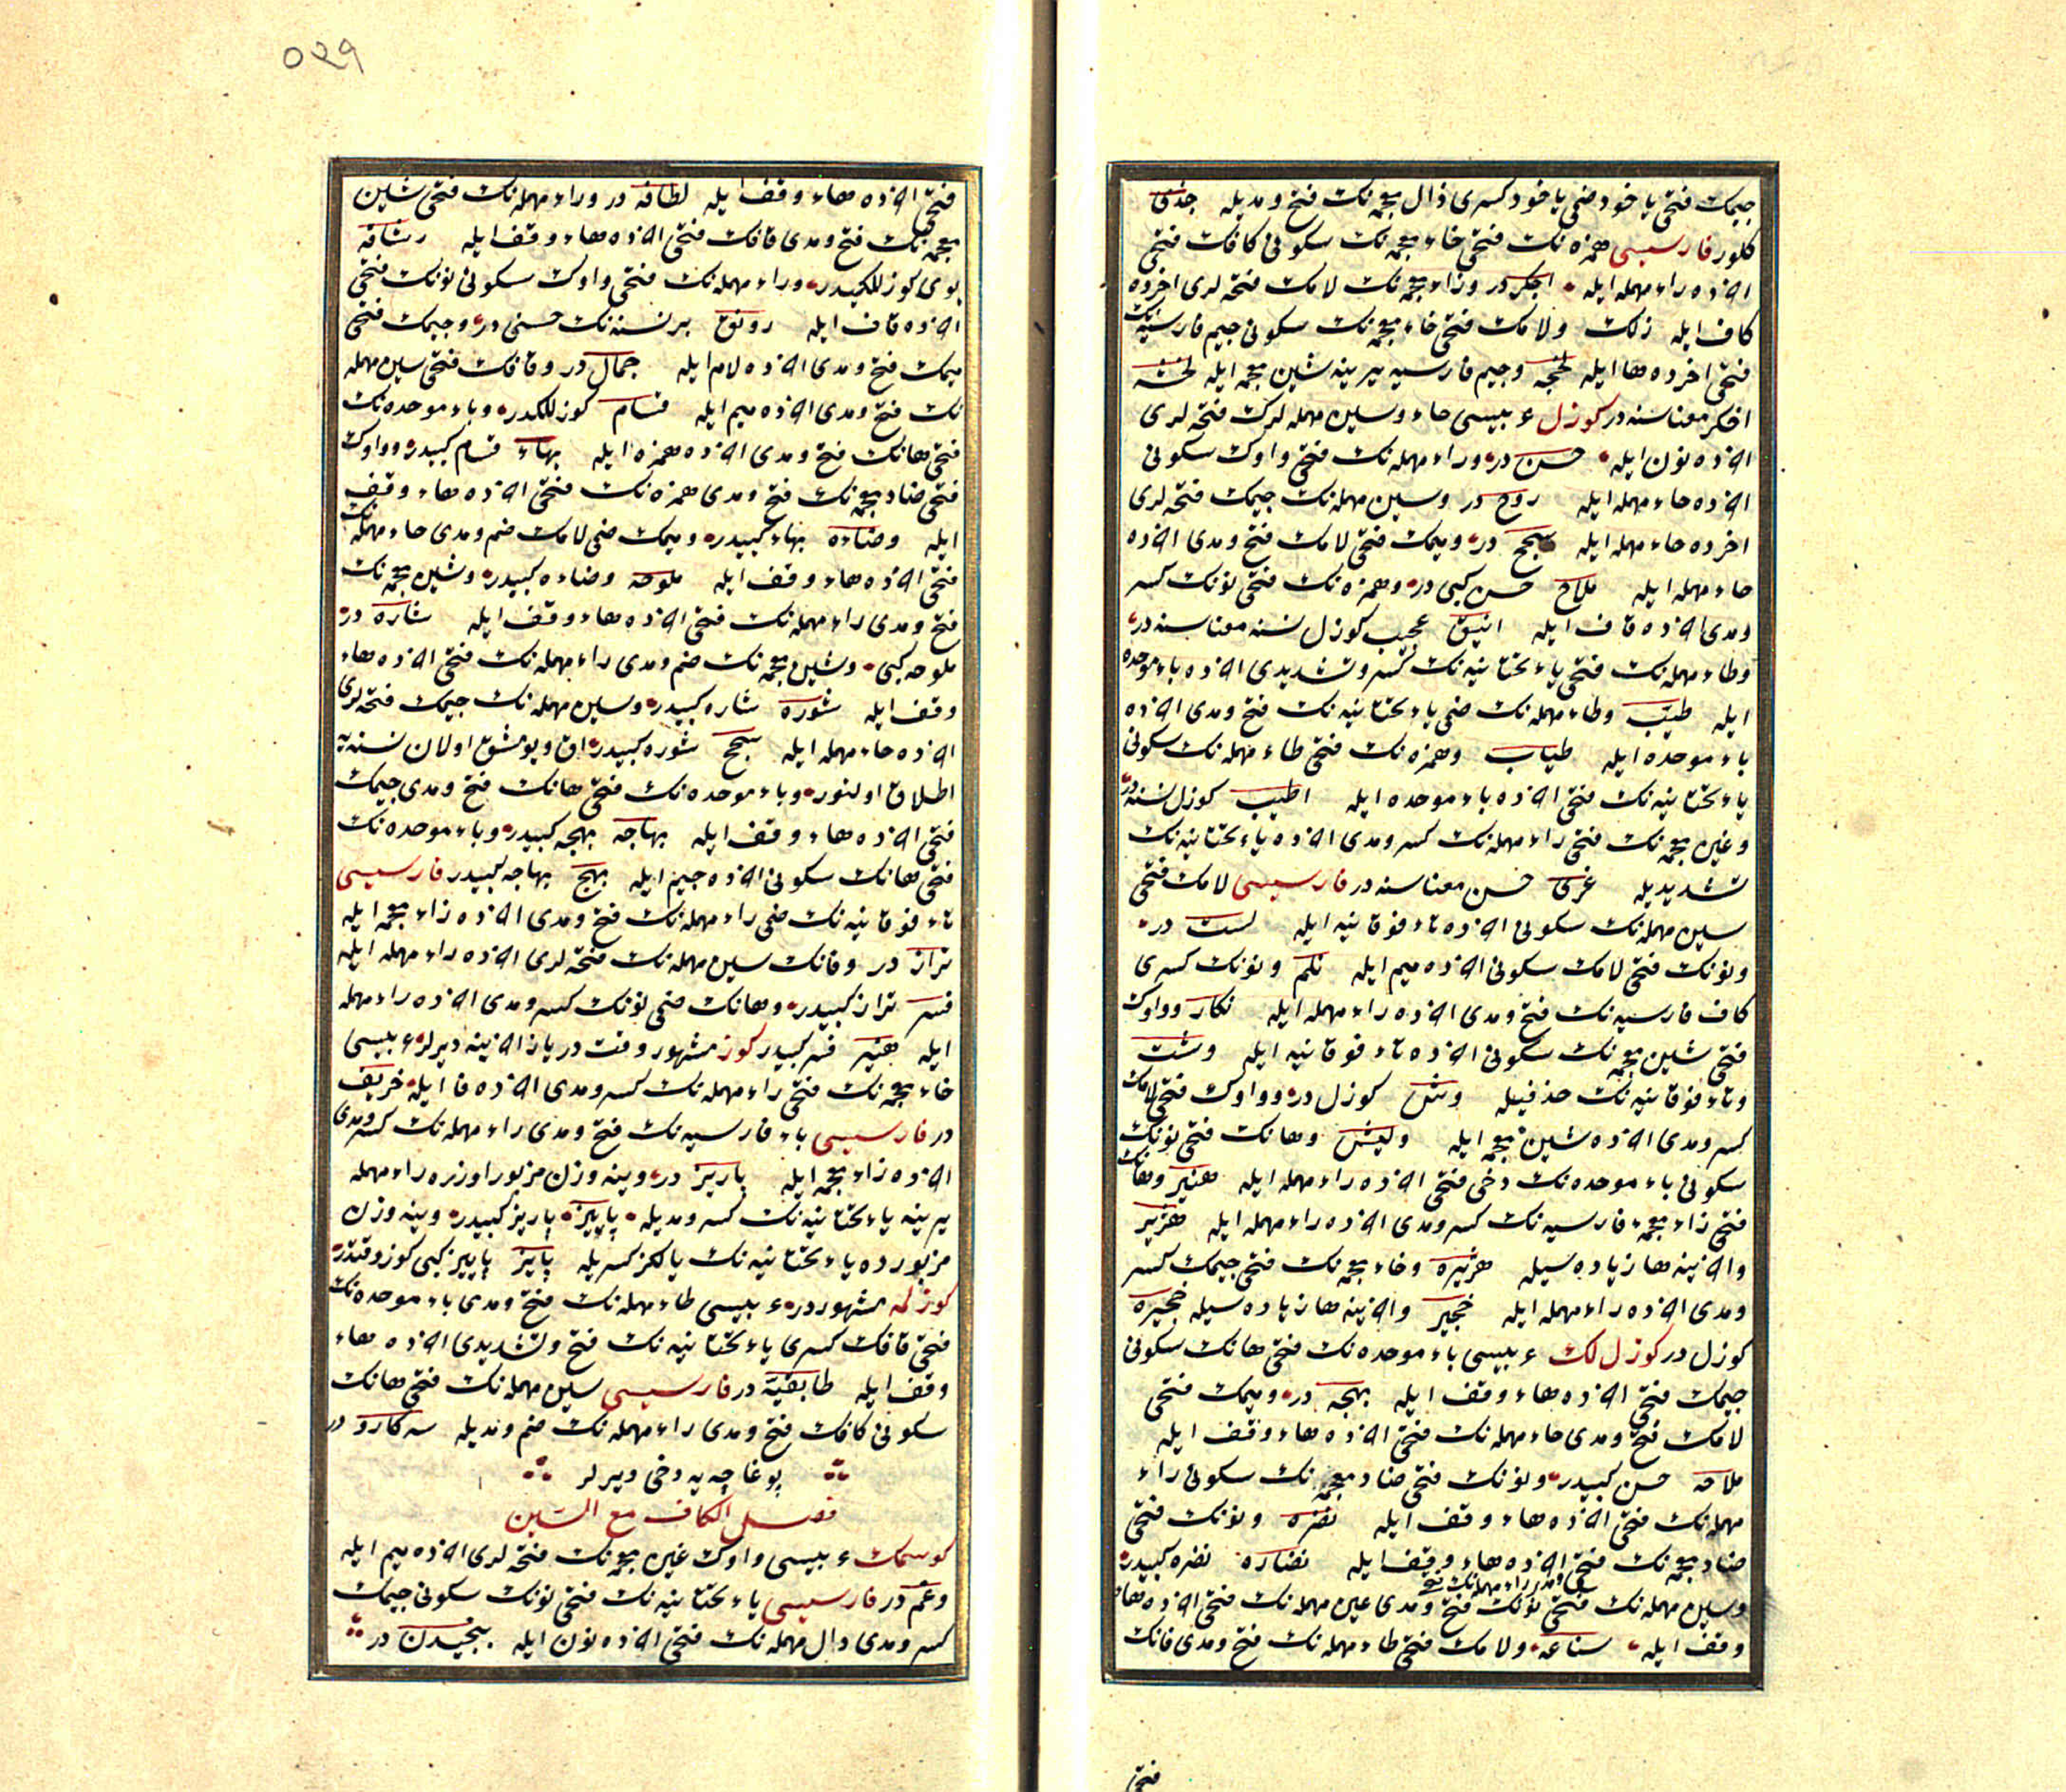 جیمك فتحی یا خود ضمی یا خود كسری ذال معجمه نك فتح و مدیله جذی
كلور فارسیسی همزه نك فتحی خاء معجمه نك سكونی كافك فتحی
اخرده راء مهمله ایله اخكر در وزاء معجمه نك لامك فتحه لری اخرده
كاف ایله زلك ولامك فتحی خاء معجمه نك سكونی جیم فارسیه نك
فتحی اخرده ها ایله لخچه وجیم فارسیه یرینه شین معجمه ایله لخشه
اخكر معناسنه در كوزل عربیسی حاء وسین مهمله لرك فتحه لری
اخرده نون ایله حسن در وراء مهمله نك فتحی واوك سكونی
اخرده حاء مهمله ایله روح در وسین مهمله نك جیمك فتحه لری
اخرده حاء مهمله ایله سجح در ومیمك فتحی لامك فتح و مدی اخرده
حاء مهمله ایله ملاح حسن كبی در وهمزه نك فتحی نونك كسر
ومدی اخرده قاف ایله انیق عجیب كوزل نسنه معناسنه در
وطاء مهمله نك فتحی یاء تحتانیه نك كسر وتشدیدی اخرده باء موحده
ایله طیب وطاء مهمله نك ضمی یاء تحتانیه نك فتح ومدی اخرده
باء موحده ایله طیاب وهمزه نك فتحی طاء مهمله نك سكونی
یاء تحتانیه نك فتحی اخرده باء موحده ایله اطیب كوزل نسنه در
وغین معجمه نك فتحی راء مهمله نك كسر ومدی اخرده یاء تحتانیه نك
تشدیدیله غری حسن معناسنه در فارسیسی لامك فتحی
سین مهمله نك سكونی اخرده تاء فوقانیه ایله لست در
ونونك فتحی لامك سكونی اخرده میم ایله نلم ونونك كسری
كاف فارسیه نك فتح ومدی اخرده راء مهمله ایله نكار وواوك
فتحی شین معجمه نك سكونی اخرده تاء فوقانیه ایله وشت
وتاء فوقانیه نك حذفیله وش كوزل در وواوك فتحی لامك
كسر ومدی اخرده شین معجمه ایله ولیش وهانك فتحی نونك
سكونی باء موحده نك دخی فتحی اخرده راء مهمله ایله هنبر وهانك
فتحی زاء معجمه فارسیه نك كسر ومدی اخرده راء مهمله ایله هژیر
واخرینه ها زیاده سیله هژیره وخاء معجمه نك فتحی جیمك كسر
ومدی اخرده راء مهمله ایله خجیر واخرینه ها زیاده سیله خجیره
كوزل در كوزل لك عربیسی باء موحده نك فتحی هانك سكونی
جیمك فتحی اخرده هاء وقف ایله بهجه در ومیمك فتحی
لامك فتح ومدی حاء مهمله نك فتحی اخرده هاء وقف ایله
ملاحه حسن كبیدر ونونك فتحی ضاد معجمه نك سكونی راء
مهمله نك فتحی اخرده هاء وقف ایله نضره ونونك فتحی
ضاد معجمه نك فتحی اخرده هاء وقف ایله نضاره نضره كبیدر
وسین مهمله نك فتحی نونك فتح ومدی عین مهمله نك فتحی اخرده هاء
وقف ایله سناعه ولامك فتحی طاء مهمله نك فتح ومدی فانك
فتحی
٥٢٩
فتحی اخرده هاء وقف ایله لطافه در وراء مهمله نك فتحی شین
معجمه نك فتح ومدی قافك فتحی اخرده هاء وقف ایله رشاقه
بوی كوزللكیدر وراء مهمله نك فتحی واوك سكونی نونك فتحی
اخرده قاف ایله رونق بر نسنه نك حسنی در وجیمك فتحی
میمك فتح ومدی اخرده لام ایله جمال در وقافك فتحی سین مهمله
نك فتح ومدی اخرده میم ایله قسام كوزللكدر وباء موحده نك
فتحی هانك فتح ومدی اخرده همزه ایله بهاء قسام كبیدر وواوك
فتحی ضاد معجمه نك فتح ومدی همزه نك فتحی اخرده هاء وقف
ایله وضاءه بهاء كبیدر ومیمك ضمی لامك ضم ومدی حاء مهمله نك
فتحی اخرده هاء وقف ایله ملوحه وضاءه كبیدر وشین معجمه نك
فتح ومدی راء مهمله نك فتحی اخرده هاء وقف ایله شاره در
ملوحه كبی وشین معجمه نك ضم ومدی راء مهمله نك فتحی اخرده هاء
وقف ایله شوره شاره كبیدر وسین مهمله نك جیمك فتحه لری
اخرده حاء مهمله ایله سجح شوره كبیدر اق ویومشق اولان نسنه یه
اطلاق اولنور وباء موحده نك فتحی هانك فتح ومدی جیمك
فتحی اخرده هاء وقف ایله بهاجه بهجه كبیدر وباء موحده نك
فتحی هانك سكونی اخرده جیم ایله بهج بهاجه كبیدر فارسیسی
تاء فوقانیه نك ضمی راء مهمله نك فتح ومدی اخرده زاء معجمه ایله
تراز در وفانك سین مهمله نك فتحه لری اخرده راء مهمله ایله
فسر تراز كبیدر وهانك ضمی نونك كسر ومدی اخرده راء مهمله
ایله هنیر فسر كبیدر كوز مشهور وقت در یاز اخرینه دیرلر عربیسی
خاء معجمه نك فتحی راء مهمله نك كسر ومدی اخرده فا ایله خریف
در فارسیسی باء فارسیه نك فتح ومدی راء مهمله نك كسر ومدی
اخرده زاء معجمه ایله پاریز در وینه وزن مزبور اوزره راء مهمله
یرینه یاء تحتانیه نك كسر ومدیله پاییز پاریز كبیدر وینه وزن
مزبورده یاء تحتانیه نك یالكز كسریله پایز پاییز كبی كوز وقتدر
كوزلمه مشهوردر عربیسی طاء مهمله نك فتح ومدی باء موحده نك
فتحی قافك كسری یاء تحتانیه نك فتح وتشدیدی اخرده هاء
وقف ایله طابقیه در فارسیسی سین مهمله نك فتحی هانك
سكونی كافك فتح ومدی راء مهمله نك ضم ومدیله سهكارو در
بوغاچه یه دخی دیرلر
فصل الكاف مع السین
كوسمك عربیسی واوك غین معجمه نك فتحه لری اخرده میم ایله
وغم در فارسیسی یاء تحتانیه نك فتحی نونك سكونی جیمك
كسر ومدی دال مهمله نك فتحی اخرده نون ایله ینجیدن در